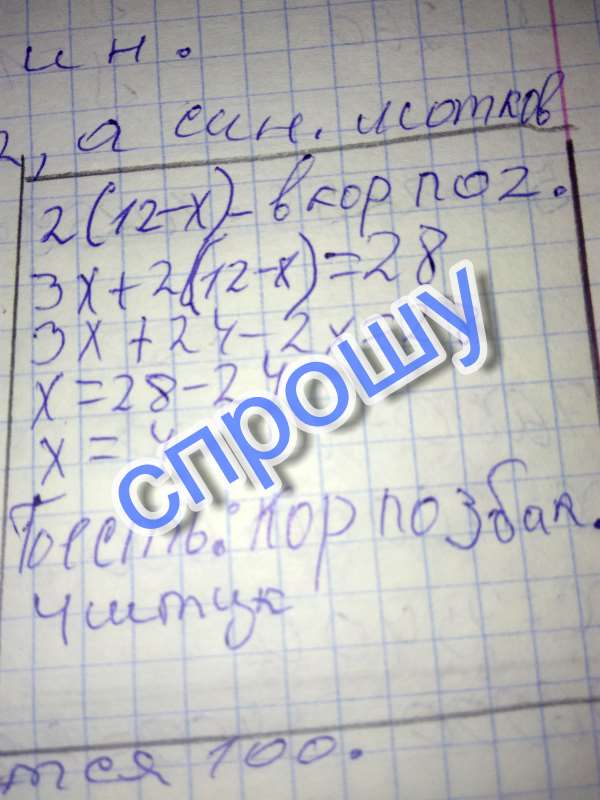 ин.
, а син. мотков
2(12-х)- в кор по 2.
3х+2(12-х)=28
3х+24-2х=28
х=28-24
х=4
спрошу
Тоесть: кор по 3 бак.
4 штук
тся 100.